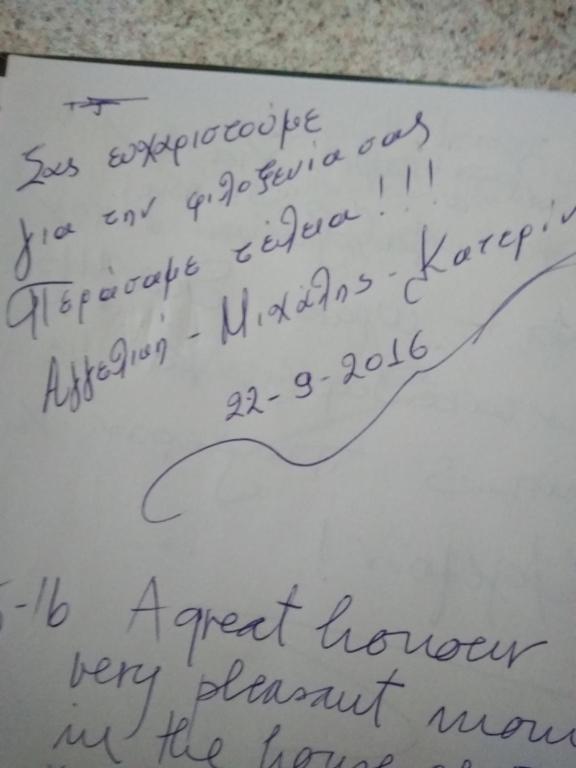 Σας ευχαριστούμε
για την φιλοξενία σας
Περάσαμε τέλεια!!!
Αγγελική - Μιχάλης - Κατερίν
22-9-2016
-16 A great honour
very pleasant mom
in the house